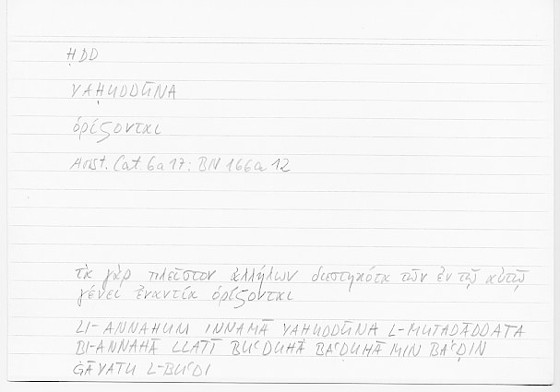 ḤDD
YAḤUDDŪNA
ὁρίζονται
Arist. Cat. 6a 17; BN 166a 12
τὰ γὰρ πλεῖστον ἀλλήλων διεστηκότα τῶν ἐν τῷ αὐτῷ
γένει ἐναντία ὁρίζονται
LI-ANNAHUM INNAMĀ YAḤUDDŪNA L-MUTAḌĀDDATA
BI-ANNAHĀ LLATĪ BUʿDUHĀ BAʿḌUHĀ MIN BAʿḌIN
ĠĀYATU L-BUʿDI